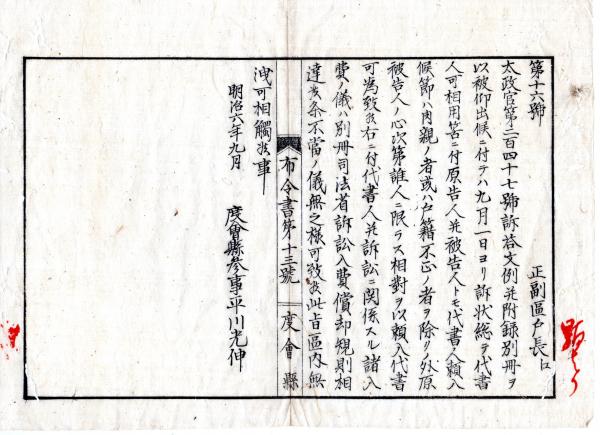 第十六號
正副區戸長江
太政官第二百四十七號訴答文例并附録別冊ヲ
以被仰出候ニ付テハ九月一日ヨリ訴状総テ代書
人可相用筈ニ付原告人并被告人トモ代書人頼入
候節ハ内親ノ者或ハ戸籍不正ノ者ヲ除クノ外原
被告人ノ心次第誰人ニ限ラス相對ヲ以頼入代書
可為致候右ニ付代書人并訴訟ニ関係スル諸入
費ノ儀ハ別冊司法省訴訟入費償却規則相
達候条不當ノ儀無之様可致候此旨區内無
布令書第十三號
度會縣
洩可相觸候事
明治六年九月
度會縣参事平川光伸